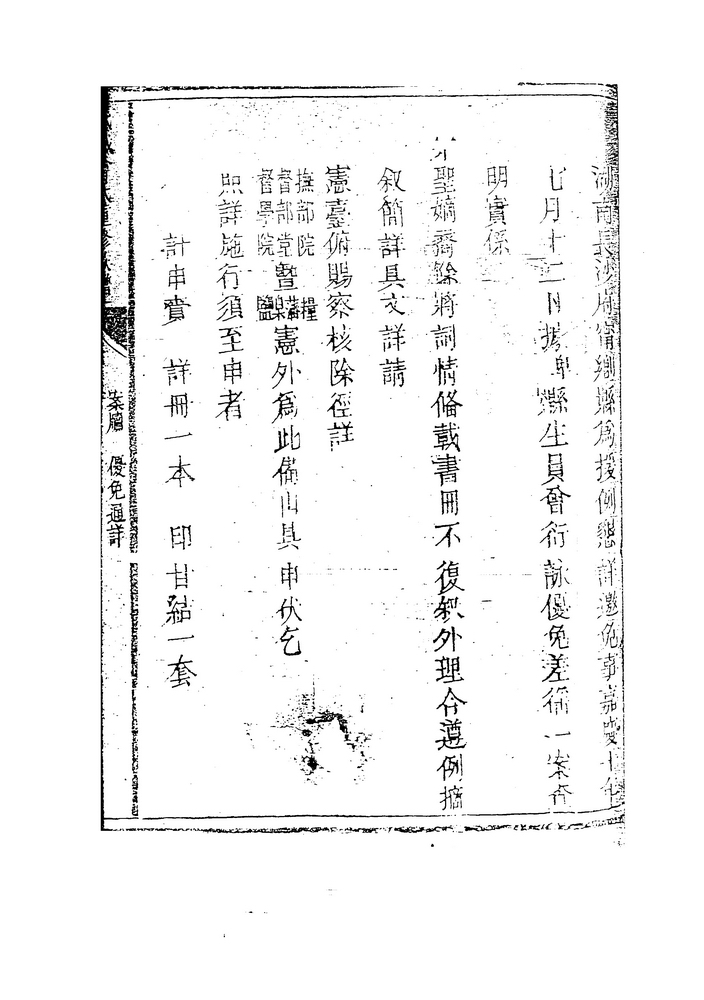 湖南長沙府甯鄉縣爲援例懇詳邀免事嘉慶十年
七月十二日據卑縣生員曾衍詠優免差徭一案查
明實係
宗聖嫡裔餘將詞情備載書冊不復叙外理合遵例摘
叙簡詳具文詳請
憲臺俯賜察核除徑詳
撫部院
督部堂
督學院
暨
糧
藩
臬
鹽
憲外爲此備由具申伏乞
照詳施行須至申者
計申賫 詳冊一本 印甘結一套
案牘 優免通詳